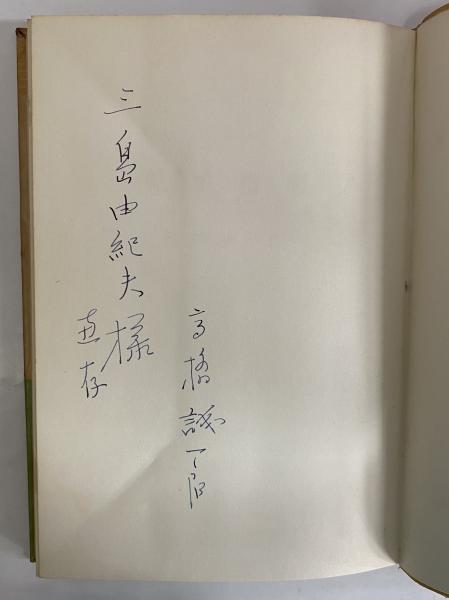 高橋誠一郎
三島由紀夫様
恵存